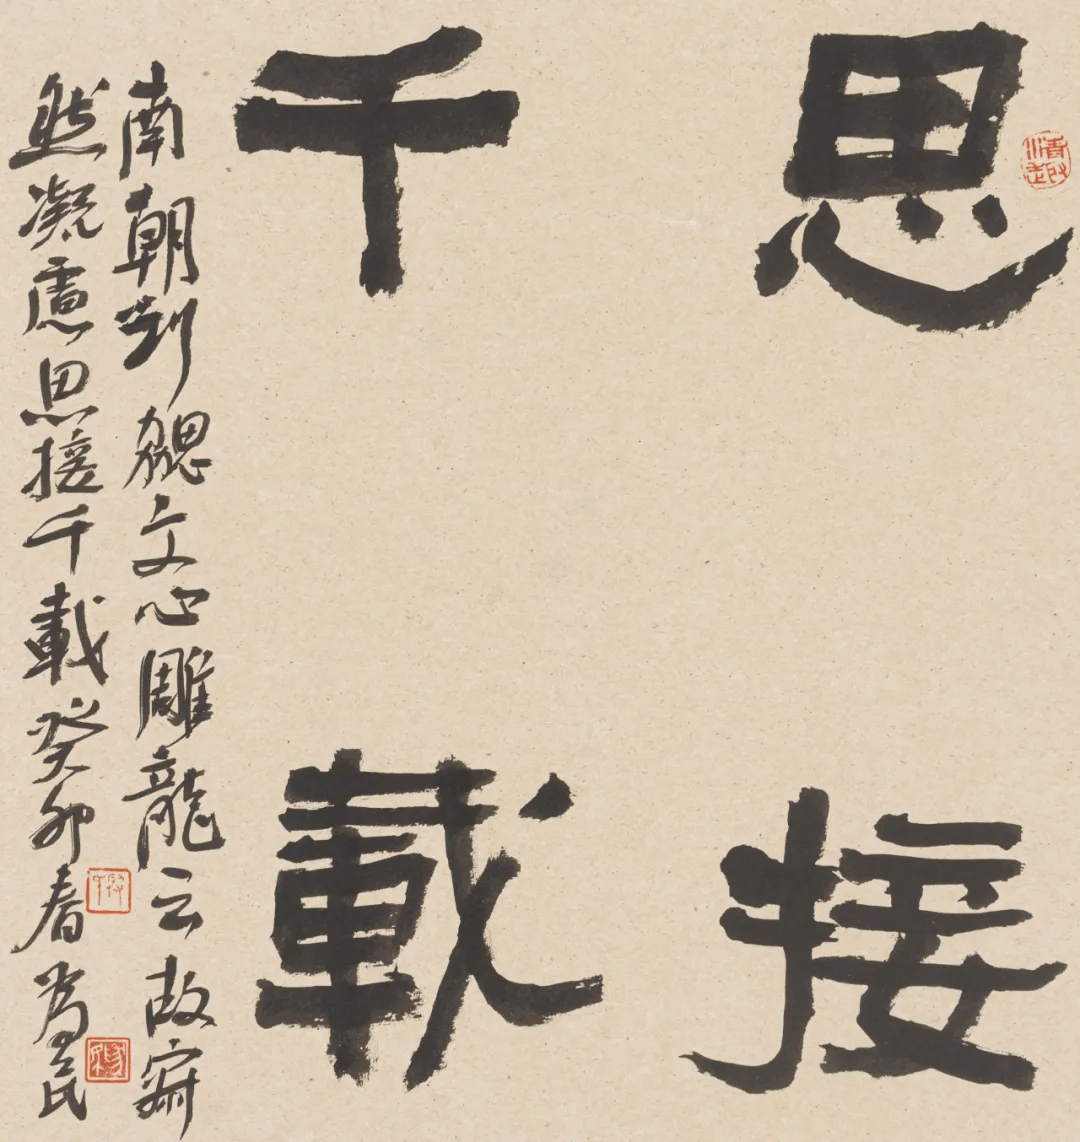 思接
千載
南朝劉勰文心雕龍云故寂
然凝慮思接千載癸卯春為民